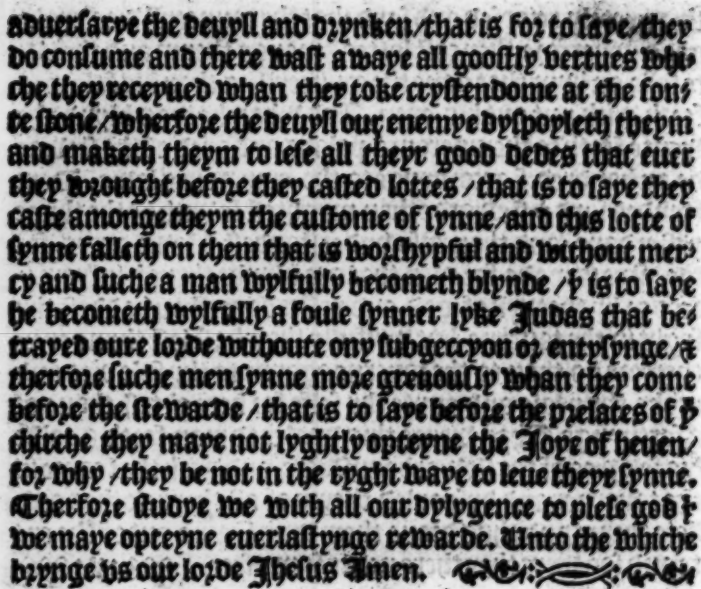 aduersarye the deuyll and drynken/that is for to saye/they
do consume and there wast awaye all goostly vertues whi-
che they receyued whan they toke crystendome at the fon-
te stone/wherfore the deuyll our enemye dyspoyleth theym
and maketh theym to lese all theyr good dedes that euer
they wrought before they casted lottes/that is to saye they
caste amonge theym the custome of synne/and this lotte of
synne falleth on them that is worshypful and without mer-
cy and suche a man wylfully becometh blynde/yͭ is to saye
he becometh wylfully a foule synner lyke Judas that be-
trayed oure lorde withoute ony subgeccyon or entysynge/⁊
therfore suche men synne more greuously whan they come
before the stewarde/that is to saye before the prelates of yͤ
chirche they maye not lyghtly opteyne the Joye of heuen/
for why/they be not in the ryght waye to leue theyr synne.
Therfore studye we with all our dylygence to plese god yͭ
we maye opteyne euerlastynge rewarde. Unto the whiche
brynge vs our lorde Jhesus Amen.